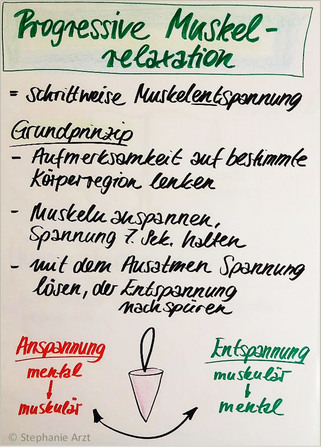 Progressive Muskel-
relaxation
= schrittweise Muskelentspannung
Grundprinzip
- Aufmerksamkeit auf bestimmte
Körperregion lenken
- Muskeln anspannen,
Spannung 7 Sek. halten
- mit dem Ausatmen Spannung
lösen, der Entspannung
nachspüren
Anspannung
mental
↓
muskulär
Entspannung
muskulär
↓
mental
© Stephanie Arzt